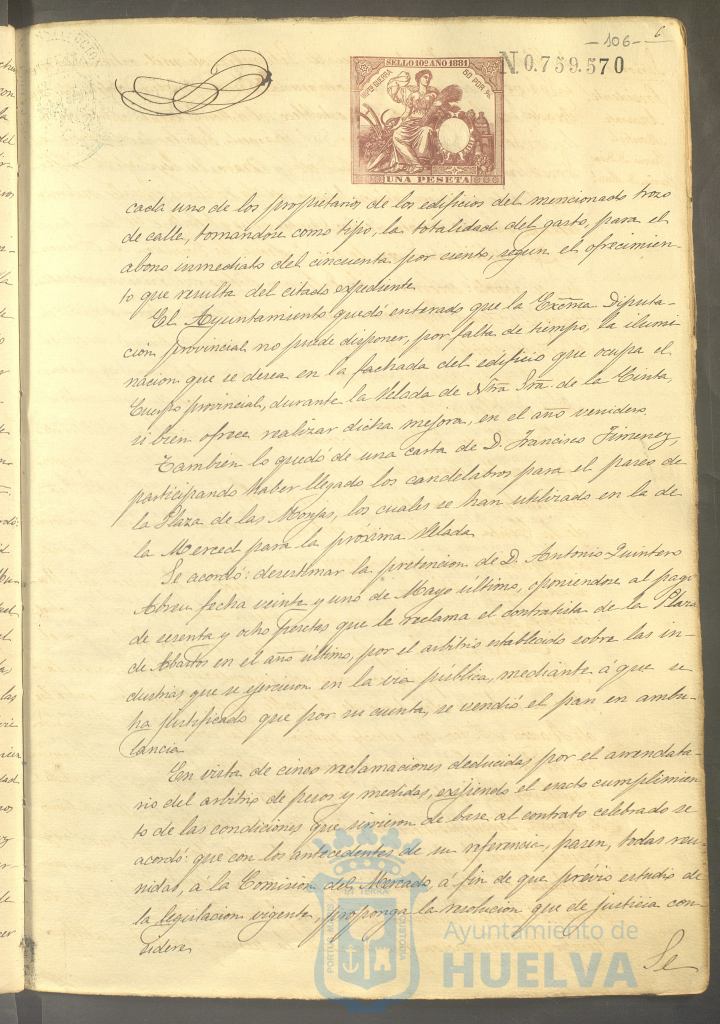 -106-
6
SELLO 10º AÑO 1881
Y DE GUERRA 50 POR %
N 0.759.570
UNA PESETA
cada uno de los propietarios de los edificios del mencionado trozo
de calle, tomandose como tipo, la totalidad del gasto, para el
abono inmediato del cincuenta por ciento, segun el ofrecimien-
to que resulta del citado expediente.
El Ayuntamiento quedó enterado que la Excma Diputa-
ción provincial no puede disponer, por falta de tiempo, la ilumi-
nacion que se desea en la fachada del edificio que ocupa el
Cuerpo provincial, durante la Velada de Ntra Sra de la Cinta,
si bien ofrece realizar dicha mejora, en el año venidero.
Tambien lo quedó de una carta de D. Francisco Jimenez,
participando haber llegado los candelabros para el paseo de
la Plaza de las Monjas, los cuales se han utilizado en la de
la Merced para la próxima Velada.
Se acordó: desestimar la pretencion de D. Antonio Quintero
Abreu fecha veinte y uno de Mayo último, oponiendose al pago
de sesenta y ocho pesetas que le reclama el contratista de la Plaza
de Abastos en el año último, por el arbitrio establecido sobre las in-
dustrias que se ejerciesen en la via pública, mediante á que se
ha justificado que por su cuenta, se vendió el pan en ambu-
lancia.
En vista de cinco reclamaciones deducidas por el arrendata-
rio del arbitrio de pesos y medidas, exijiendo el exacto cumplimien-
to de las condiciones que sirvieron de base al contrato celebrado se
acordó: que con los antecedentes de su referencia, pasen, todas reu-
nidas, á la Comision del Mercado, á fin de que prévio estudio de
la legislacion vigente, proponga la resolucion que de justicia con-
sidere.
Se
PORTUS MARIS ET TERRÆ CUSTODIA
Ayuntamiento de
HUELVA